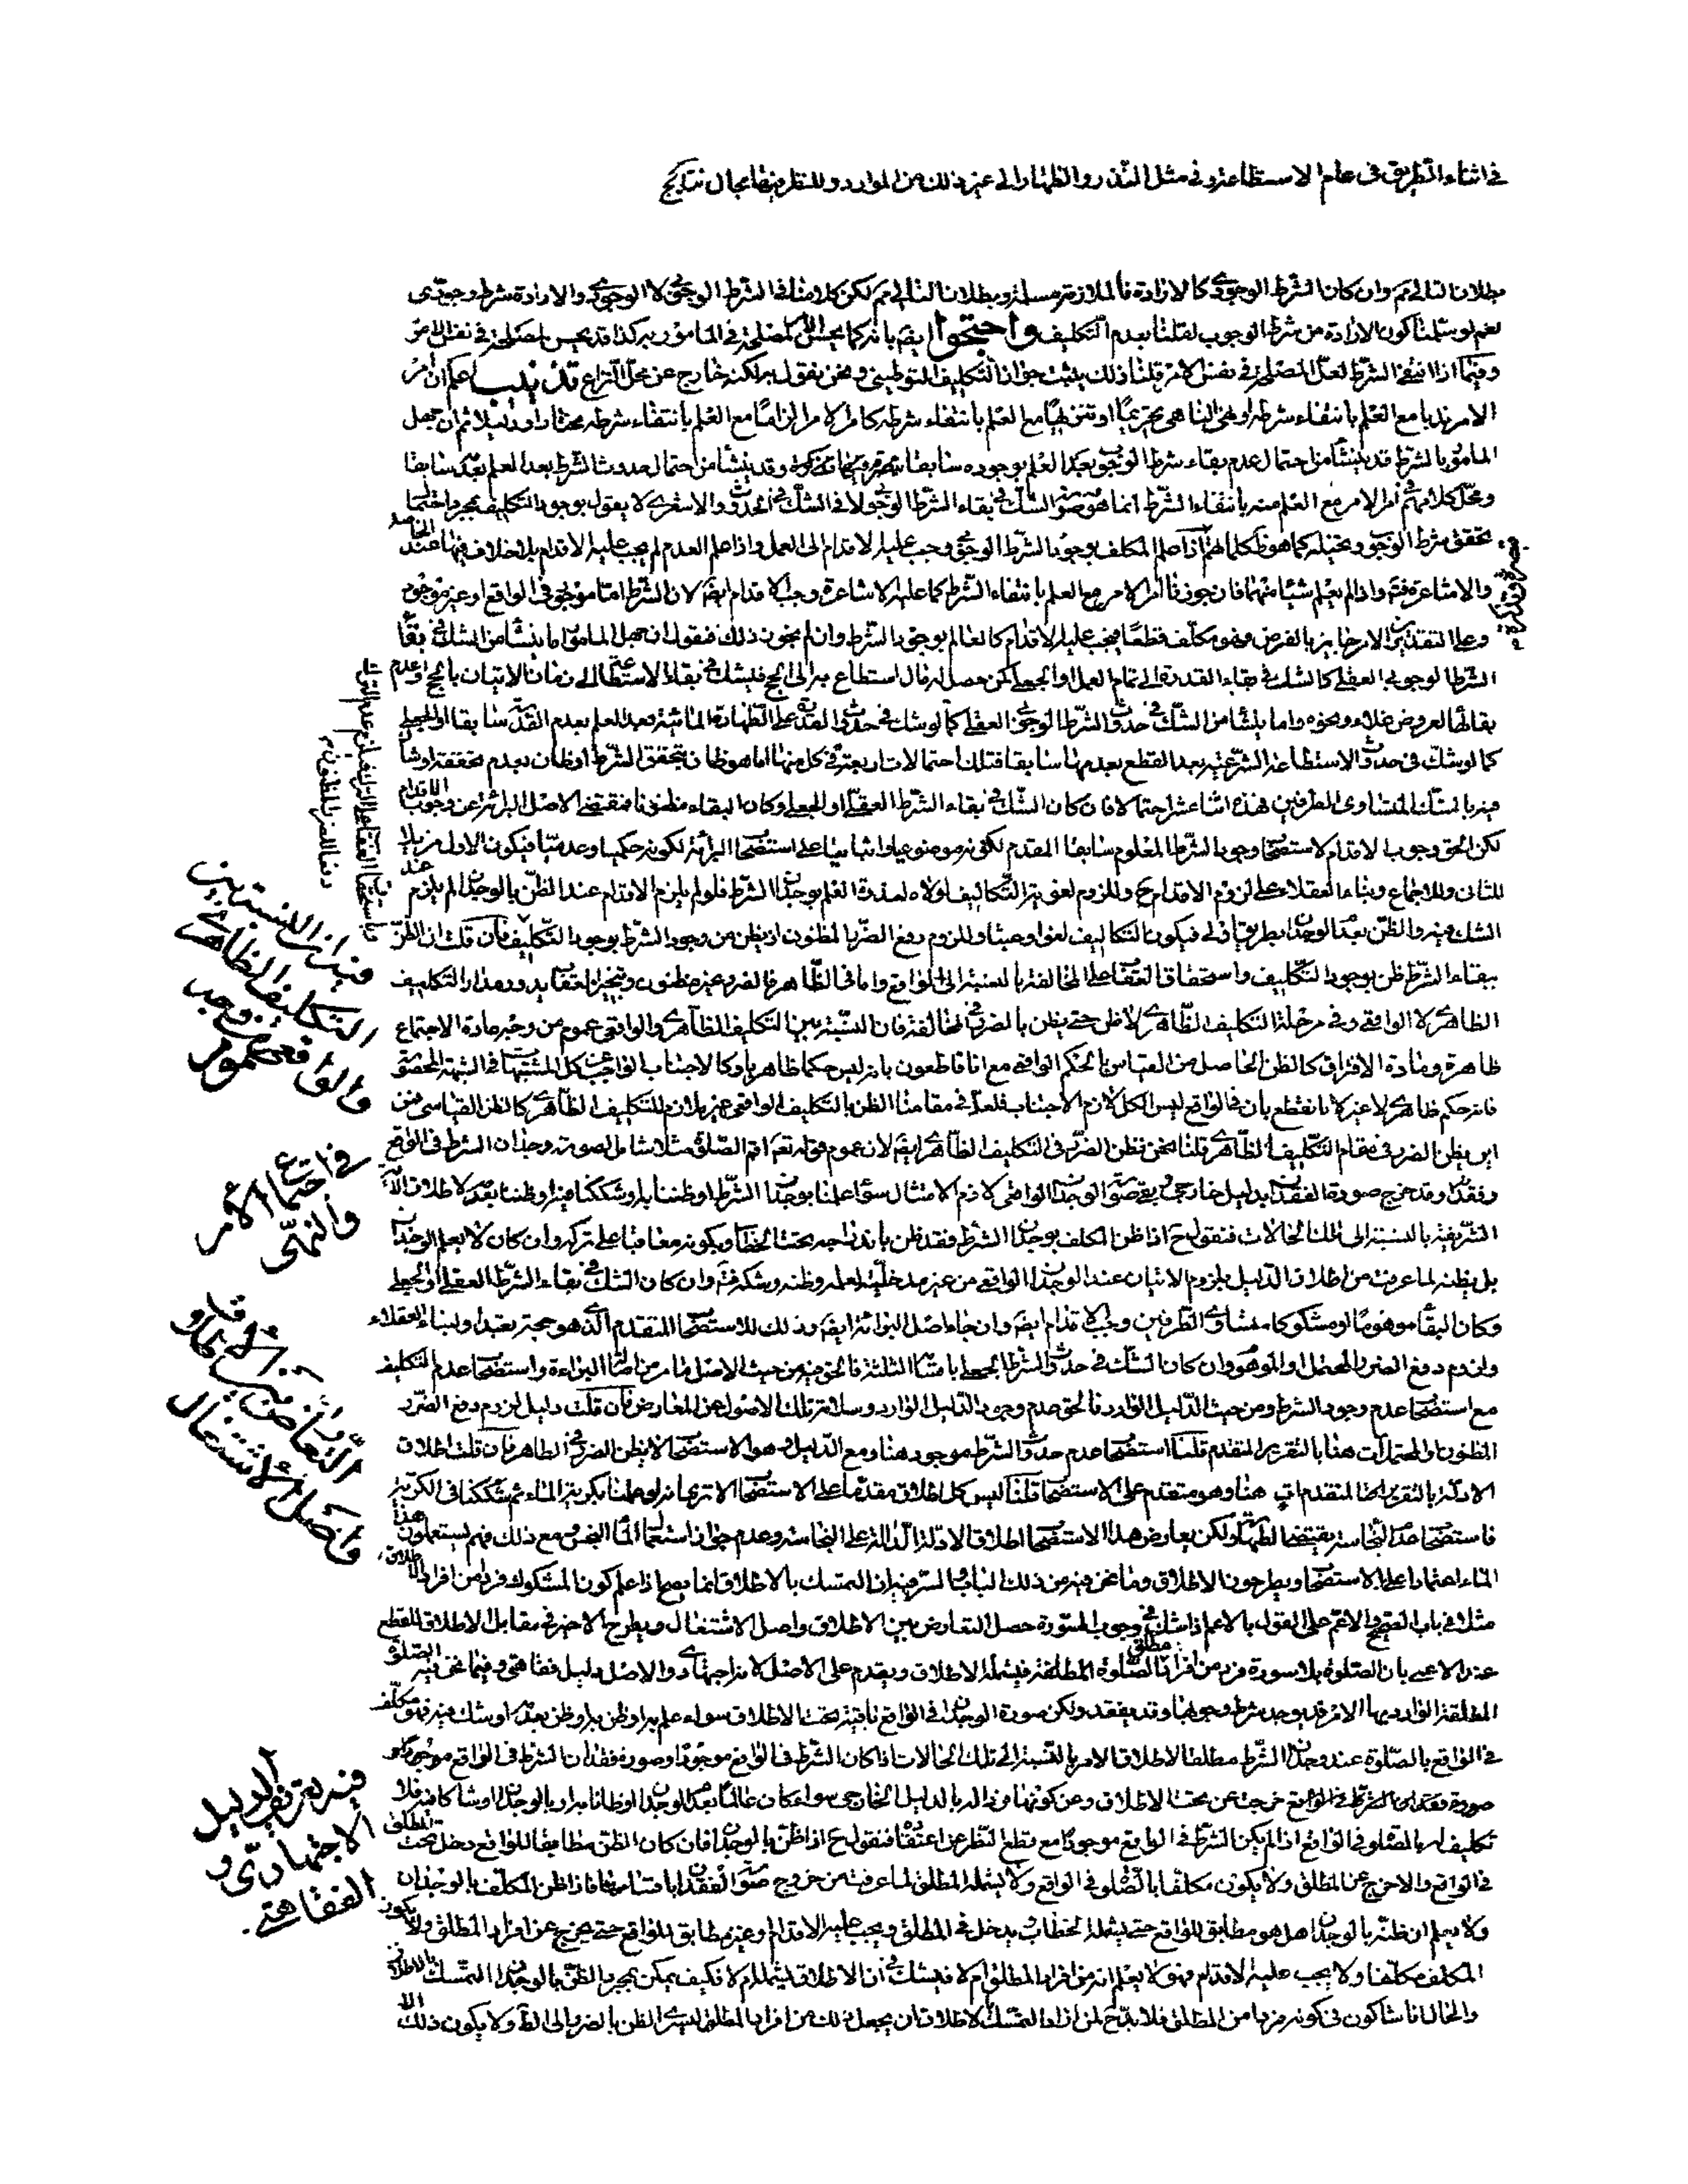 في اثناء الطريق في عام الاستطاعة وفي مثل النذر والظهار الى غير ذلك من الموارد وللنظر فيها مجال نتايج
بطلان التالى مم وان كان الشرط الوجودى كالارادة فالملازمة مسلمة وبطلان التالى مم لكن كلامنا في الشرط الوجوبى لا الوجودى والارادة شرط وجودى
نعم لو سلمنا كون الارادة من شرط الوجوب لقلنا بعدم التكليف واحتجوا ايضا بانه كما يحسن الامر لمصلحة في المامور به كذا قد يحسن لمصلحة في نفس الامر
وفيما اذا انتفى الشرط لعل المصلحة في نفس الامر قلنا ذلك يثبت جواز التكليف التوطينى ونحن نقول به لكنه خارج عن محل النزاع تذنيب اعلم ان امر
الامر ندبا مع العلم بانتفاء شرطه او نهى الناهى تحريما او تنزيها مع العلم بانتفاء شرطه كامر الامر الزاما مع العلم بانتفاء شرطه مختارا ودليلا ثم ان جهل
المامور بالشرط قد ينشأ من احتمال عدم بقاء شرط الوجوب بعد العلم بوجوده سابقا وقد ينشأ من احتمال حدوث الشرط بعد العلم بعدمه سابقا
ومحل كلامهم في امر الامر مع العلم منه بانتفاء الشرط انما هو صورة الشك في بقاء الشرط الوجوبى لا في الشك في الحدوث والاشعرى لا يقول بوجود التكليف بمجرد احتمال
تحقق شرط الوجوب وتخيله كما هو ظ كلماتهم اذا علم المكلف بوجود الشرط الوجوبى وجب عليه الاقدام الى العمل واذا علم العدم لم يجب عليه الاقدام بلا خلاف فيهما عند الخاصة
والاشاعرة فتم واذا لم يعلم شيئا منهما فان جوزنا امر الامر مع العلم بانتفاء الشرط كما عليه الاشاعرة وجب الاقدام ايضا لان الشرط اما موجود في الواقع او غير موجود
وعلى التقديرين الامر جايز بالفرض وهو مكلف قطعا فيجب عليه الاقدام كالعالم بوجود الشرط وان لم نجوز ذلك فنقول ان جهل المامور اما ينشأ من الشك في بقاء
الشرط الوجوبى العقلى كالشك في بقاء القدرة الى تمام العمل او الجعلى كمن حصل له مال استطاع به الى الحج فليشك في بقاء الاستطاعة الى زمان الاتيان بالحج او عدم
بقائها لعروض غلاء ونحوه واما ينشأ من الشك في حدوث الشرط الوجوبى العقلى كما لو شك في حدوث القدرة على الطهارة المائية بعد العلم بعدم القدرة سابقا او الجعلى
كما لو شك في حدوث الاستطاعة الشرعية بعد القطع بعدمها سابقا فتلك احتمالات اربعة في كل منها اما هو ظان بتحقق الشرط او ظان بعدم تحققه او شاك
فيه بالشك المتساوى الطرفين فهذه اثنا عشر احتمالا فان كان الشك في بقاء الشرط العقلى او الجعلى وكان البقاء مظنونا فمقتضى الاصل البرائة عن وجوب الاقدام
لكن الحق وجوب الاقدام لاستصحاب وجود الشرط المعلوم سابقا المقدم لكونه موضوعيا واثباتيا على استصحاب البرائة لكونه حكميا وعدميا فيكون الاول مزيلا
للثانى وللاجماع وبناء العقلاء على لزوم الاقدام ح وللزوم لغوية التكاليف لولاه لعدم العلم بوجدان الشرط فلو لم يلزم الاقدام عند الظن بالوجدان لم يلزم عند
الشك فيه والظن بعدم الوجدان بطريق اولى فيكون التكاليف لغوا وعبثا وللزوم دفع الضرر المظنون اذ يظن من وجود الشرط بوجود التكليف فان قلت ان الظن
ببقاء الشرط ظن بوجود التكليف واستحقاق العقاب على المخالفة بالنسبة الى الواقع واما في الظاهر فالضرر غير مظنون وتنجيز العقاب يدور مدار التكليف
الظاهرى لا الواقعى وفي مرحلة التكليف الظاهرى لا ظن حتى يظن بالضرر في المخالفة فان النسبة بين التكليف الظاهرى والواقعى عموم من وجه مادة الاجتماع
ظاهرة ومادة الافتراق كالظن الحاصل من القياس بالحكم الواقعى مع انا قاطعون بانه ليس حكما ظاهريا وكالاجتناب الواجب عن كل المشتبهات في الشبهة المحصورة
فانه حكم ظاهرى لا غير لانا نقطع بان في الواقع ليس الكل لازم الاجتناب فلعل في مقامنا الظن بالتكليف الواقعى غير ملازم للتكليف الظاهرى كالظن القياسى فمن
اين يظن الضرر في مقام التكليف الظاهرى قلنا نحن نظن الضرر في التكليف الظاهرى ايضا لان عموم قوله تعم اقم الصلوة مثلا شامل لصورتى وجدان الشرط في الواقع
وفقدانه وقد خرج صورة الفقدان بدليل خارجى وبقى صورة الوجدان الواقعى لازم الامتثال سواء علمنا بوجدان الشرط او ظننا به او شككنا فيه او ظننا بعدمه لاطلاق الاية
الشريفة بالنسبة الى تلك الحالات فنقول ح اذا ظن المكلف بوجدان الشرط فقد ظن باندراجه تحت الخطاب وبكونه معاقبا على تركه وان كان لا يعلم الوجدان
بل يظنه لما عرفت من اطلاق الدليل بلزوم الاتيان عند الوجدان الواقعى من غير مدخلية لعلمه وظنه وشكه فتم وان كان الشك في بقاء الشرط العقلى او الجعلى
وكان البقاء موهوما او مشكوكا متساوى الطرفين وجب الاقدام ايضا وان جاء اصل البرائة ايضا وذلك للاستصحاب المتقدم الذى هو حجة تعبدا ولبناء العقلاء
ولزوم دفع الضرر المحتمل او الموهوم وان كان الشك في حدوث الشرط الجعلى باقسامه الثلثة فالحق فيه من حيث الاصل ما مر من اصالة البراءة واستصحاب عدم التكليف
مع استصحاب عدم وجود الشرط ومن حيث الدليل الوارد فالحق عدم وجود الدليل الوارد وسلامة تلك الاصول عن المعارض فان قلت دليل لزوم دفع الضرر
المظنون او المحتمل آت هنا بالتقرير المتقدم قلنا استصحاب عدم حدوث الشرط موجود هنا ومع الدليل وهو الاستصحاب لا يظن الضرر في الظاهر فان قلت اطلاق
الادلة بالتقرير المتقدم آت هنا وهو متقدم على الاستصحاب قلنا ليس كل اطلاق مقدما على الاستصحاب الا ترى انه لو علمنا بكرية الماء ثم شككنا في الكرية
فاستصحاب عدم النجاسة يقتضى الطهارة ولكن يعارض هذا الاستصحاب اطلاق الادلة الدالة على النجاسة وعدم جواز استعمال الماء النجس ومع ذلك فهم يستعملون هذا
الماء اعتمادا على الاستصحاب ويطرحون الاطلاق وما نحن فيه من ذلك الباب والسر فيه ان التمسك بالاطلاق انما يصح اذا علم كون المشكوك فردا من افراد الاطلاق
مثلا في باب الصحيح والاعم على القول بالاعم اذا شك في وجوب السورة حصل التعارض بين الاطلاق واصل الاشتغال ويطرح الاخير في مقابل الاطلاق للقطع
عند الاعمى بان الصلوة بلا سورة فرد من افراد مطلق الصلوة المطلقة فيشمله الاطلاق ويقدم على الاصل لانه اجتهادى والاصل دليل فقاهتى وفيما نحن فيه الصلوة
المطلقة الوارد بها الامر قد يوجد شرط وجوبها وقد يفقد ولكن صورة الوجدان في الواقع باقية تحت الاطلاق سواء علم به او ظن به او ظن بعدمه او شك فيه فهو مكلف
في الواقع بالصلوة عند وجدان الشرط مطلقا لاطلاق الامر بالنسبة الى تلك الحالات اذا كان الشرط في الواقع موجودا وصورة فقدان الشرط في الواقع
صورة فقدان الشرط في الواقع خرجت عن تحت الاطلاق وعن كونها مرادا به بالدليل الخارجى سواء كان عالما بعدم الوجدان او ظانا به او بالوجدان او شاكا فيه فلا
تكليف له بالصلوة في الواقع اذا لم يكن الشرط في الواقع موجودا مع قطع النظر عن اعتقاده فنقول ح اذا ظن بالوجدان فان كان الظن مطابقا للواقع دخل تحت المطلق
في الواقع والا خرج عن المطلق ولا يكون مكلفا بالصلوة في الواقع ولا يشمله المطلق لما عرفت من خروج صورة الفقدان باقسامها فاذا ظن المكلف بالوجدان
ولا يعلم ان ظنه بالوجدان هل هو مطابق للواقع حتى يشمله الخطاب ويدخل في المطلق ويجب عليه الاقدام او غير مطابق للواقع حتى يخرج عن افراد المطلق ولا يكون
المكلف مكلفا ولا يجب عليه الاقدام فهو لا يعلم انه من افراد المطلق ام لا فيشك في ان الاطلاق يشمله ام لا فكيف يمكن بمجرد الظن بالوجدان التمسك بالاطلاق
والحال انا شاكون في كونه فردا من المطلق فلا بد ح لمن اراد التمسك بالاطلاق ان يجعل ذلك من افراد المطلق ليسرى الظن بالضرر الى الظ ولا يكون ذلك الا
فيه ان النسبة بين
التكليف الظاهرى
والواقعى من وجه
عموم
في اجتماع
الامر
والنهى
التعارض بين الاطلاق
واصل الاشتغال
فيه تعريف الدليل
الاجتهادى و
الفقاهتى